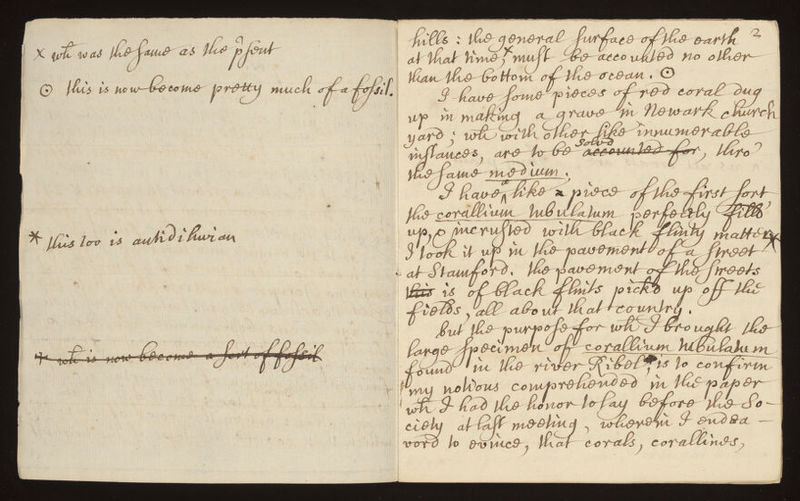 x wh was the same as the p̃sent
⊙ this is now become pretty much of a fossil.
* this too is antidiluvian
* wh is now become a sort of fossil
2
hills: the general surface of the earth
at that time,x must be accounted no other
than the bottom of the ocean. ⊙
I have some pieces of red coral dug
up in making a grave in Newark church
yard; wh with other like innumerable
instances, are to be accounted for, thro'
solvd
the same medium.
I have a like a piece of the first sort
the corallium tubulatum perfectly filld
up, & incrusted with black flinty matter *
I took it up in the pavement of a street
at Stamford. the pavement of the streets
this is of black flints pickd up off the
fields, all about that country.
but the purpose for wh I brought the
large specimen of corallium tubulatum
found in the river Ribel, is to confirm
my notions comprehended in the paper
wh I had the honor to lay before the So-
ciety at last meeting, wherein I endea-
vord to evince, that corals, corallines,